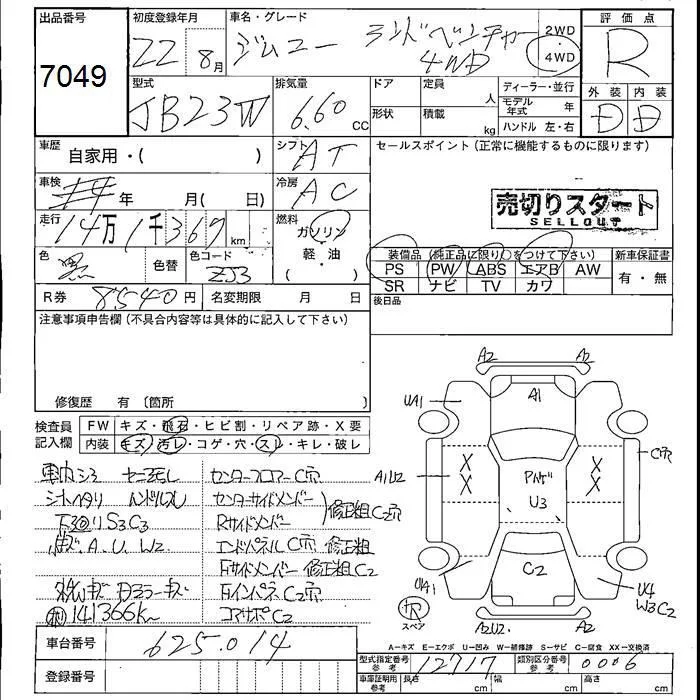 出品番号
7049
初度登録年月
22 8月
車名・グレード
ジムニー ランドベンチャー
4WD
2WD
・
4WD
評価点
R
型式
JB23W
排気量
6.60 CC
ドア
定員 人
形状
積載 kg
ディーラー・並行
モデル年式 年
ハンドル 左・右
外装 内装
D D
車歴
自家用・( )
シフト
AT
セールスポイント(正常に機能するものに限ります)
車検
年 月( 日)
冷房
AC
売切りスタート
SELLOUT
走行
14万1千367 km
燃料
ガソリン
軽・油
( )
色
黒
色替
色コード
ZJ3
装備品(純正品に限り〇をつけて下さい)
新車保証書
PS PW ABS エアB AW
有・無
SR ナビ TV カワ
R券 8540円
名変期限 月 日
後日品
注意事項申告欄(不具合内容等は具体的に記入して下さい)
修復歴 有 〔箇所
検査員
記入欄
FW キズ・飛石・ヒビ割・リペア跡・X要
内装 キズ・汚レ・コゲ・穴・スレ・キレ・破レ
センターフロアーC穴
シートヘタリ ハンドルスレ
センターサイドメンバー
修正粗C2穴
下廻りS3C3
Rサイドメンバー
A.U.W2
エンドパネルC穴 修正粗
Fサイドメンバー 修正粗C2
ドアミラーキズ
Fインパネ C2穴
141366km
コアサポC2
A2 A2
UA1
A1
C穴
A1U2
X
X
X
X
U3
C2
UA1
U4
W3C2
スペア
A2U2. A2
A=キズ E=エクボ U=凹み W=補修跡 S=サビ C=腐食 XX=交換済
車台番号
625014
型式指定番号
参考
12717
類別区分番号
参考
0006
登録番号
車庫証明用
参考
長さ cm
幅 cm
高さ cm